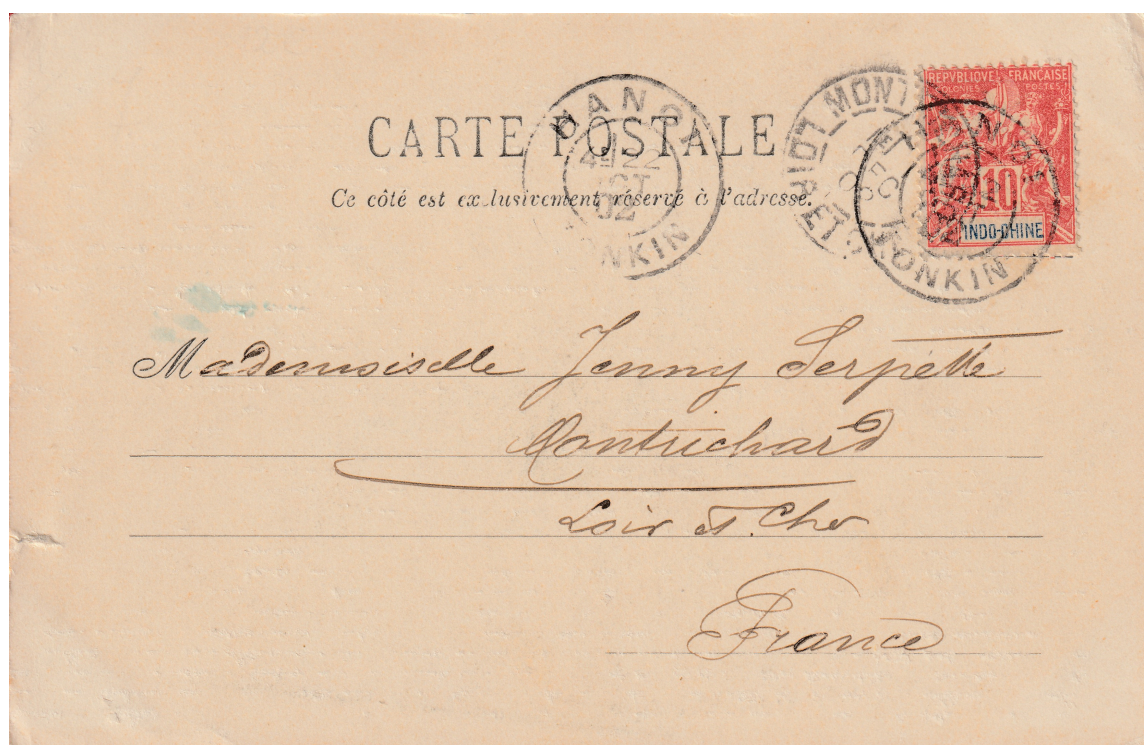 CARTE POSTALE
Ce côté est exclusivement réservé à l'adresse.
HANOI
22
02
TONKIN
MONT
LOIR ET
REPVBLIQVE FRANÇAISE
COLONIES POSTES
10
INDO-CHINE
TONKIN
Mademoiselle Jenny Serpette
Montrichard
Loir et Cher
France